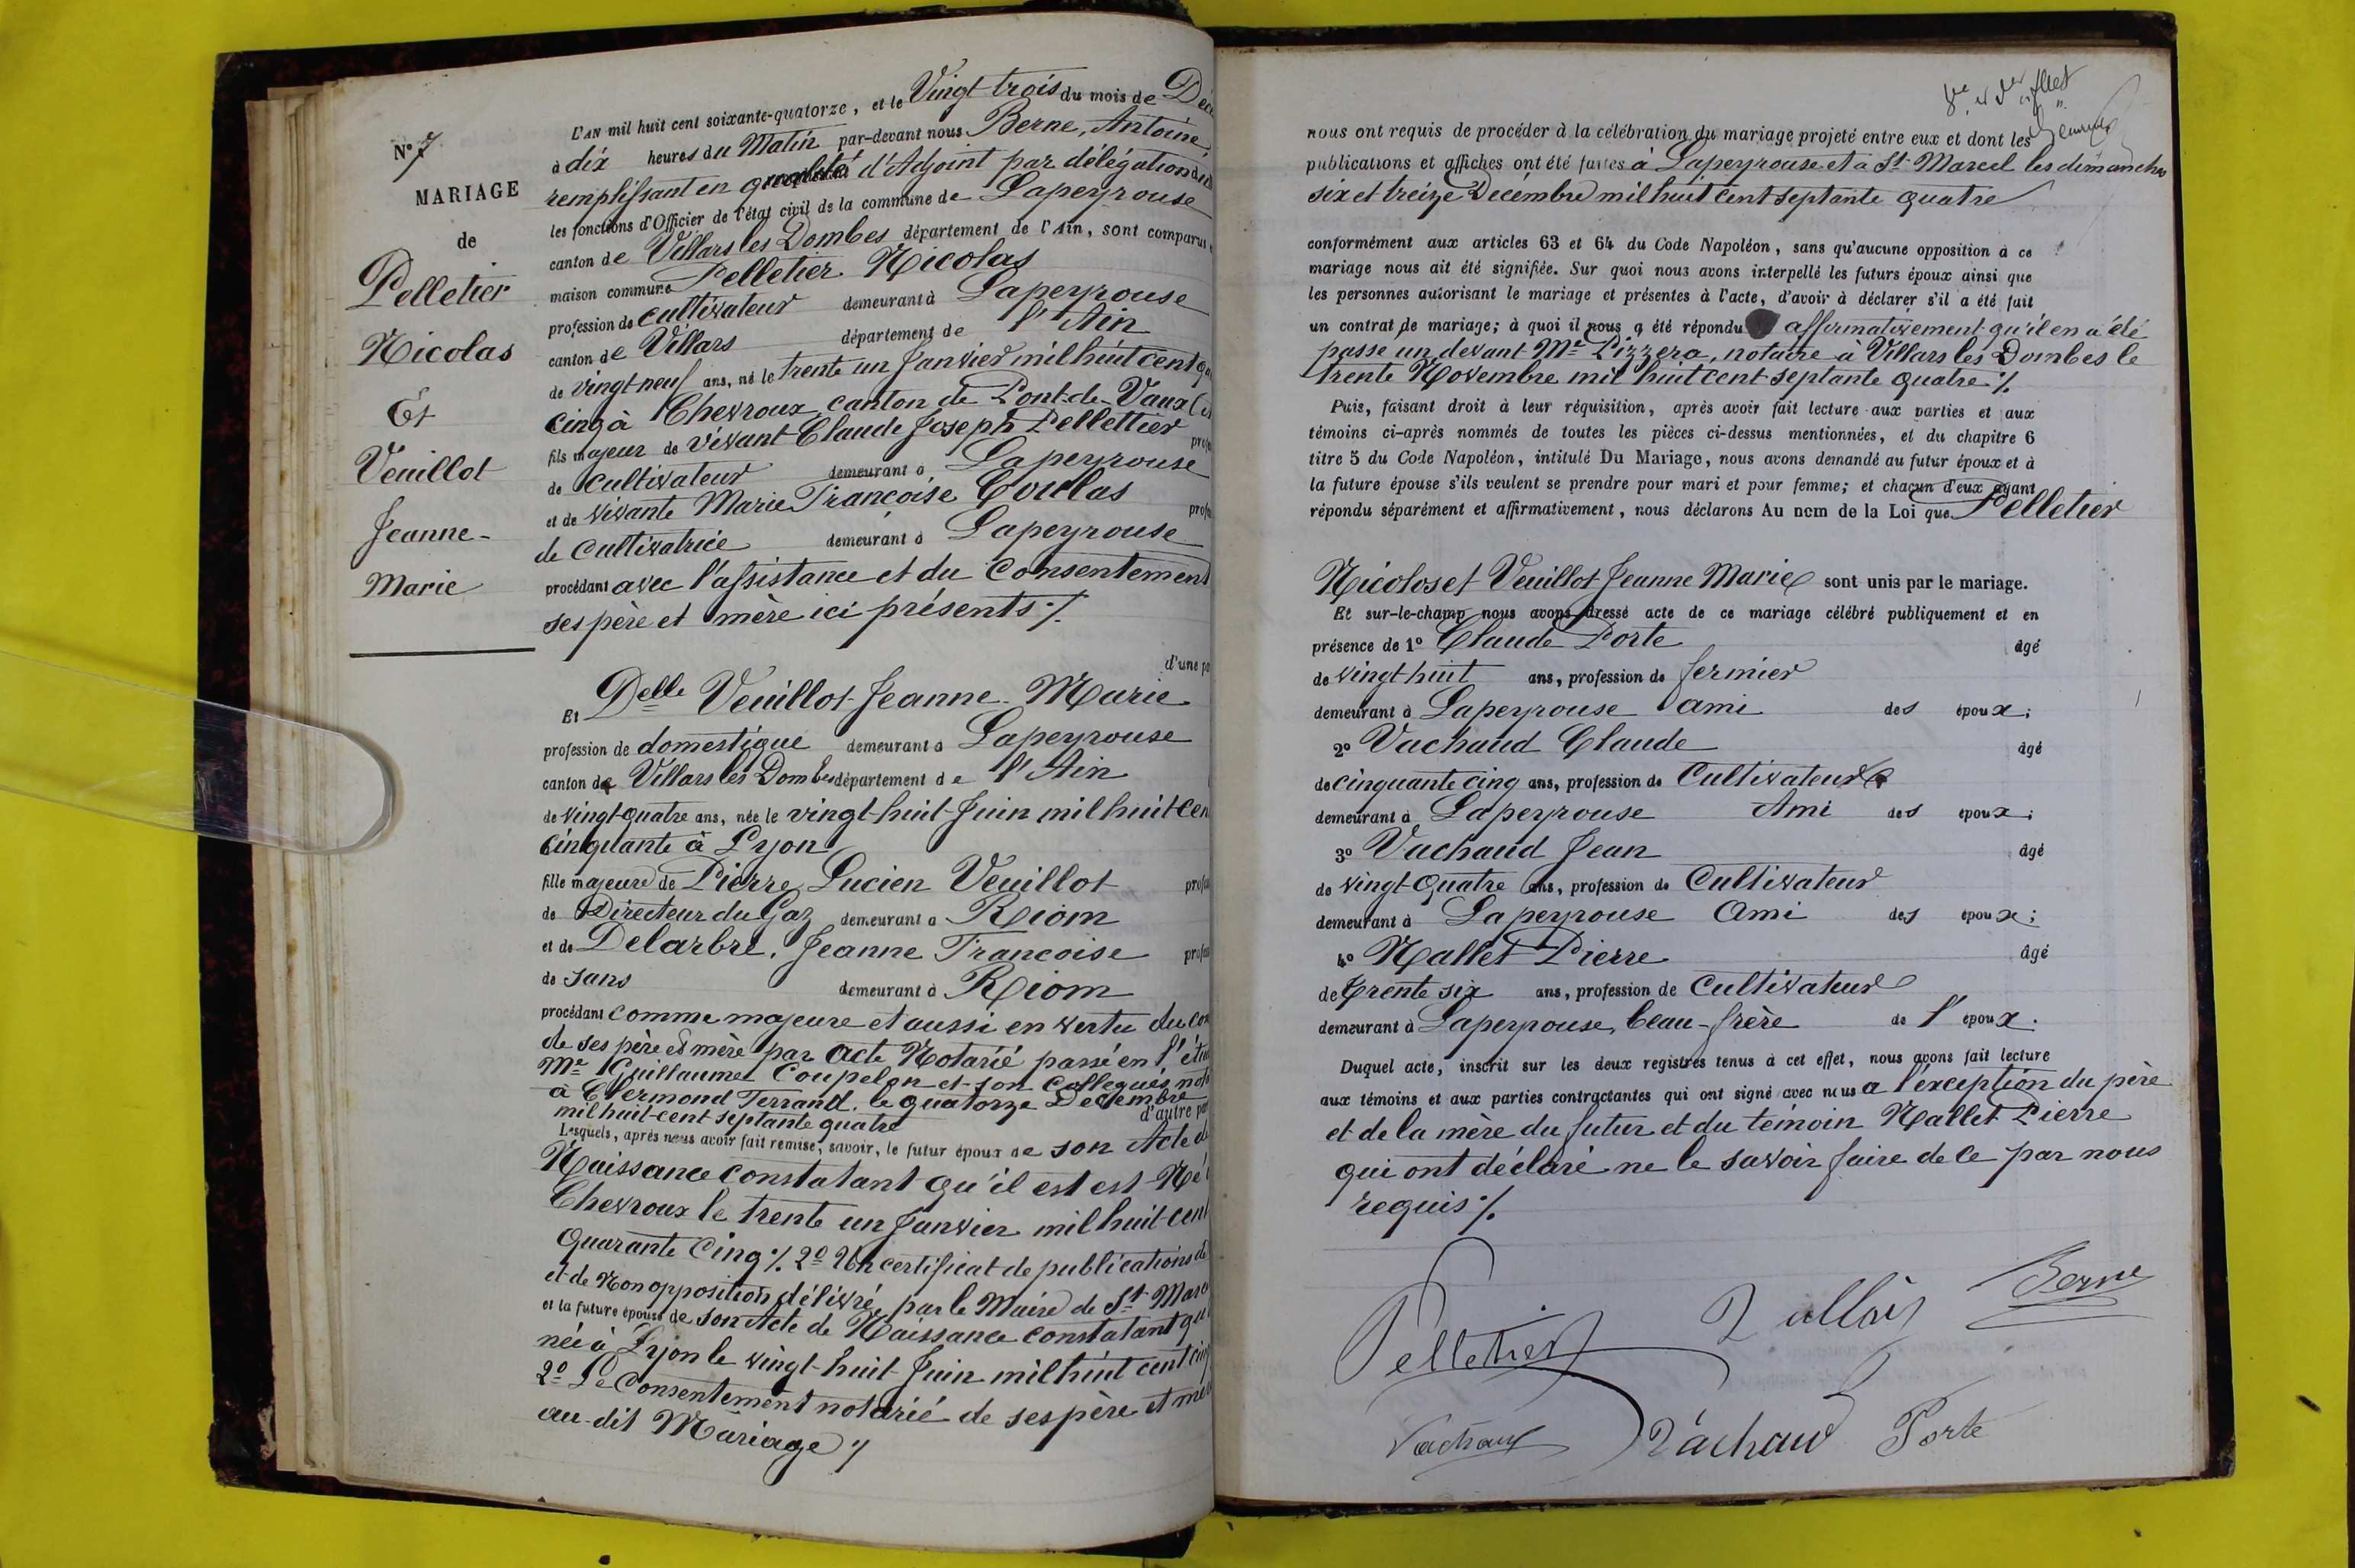 N° 7
MARIAGE
de
Pelletier
Nicolas
Et
Veuillot
Jeanne-
Marie
L'AN mil huit cent soixante-quatorze, et le Vingt trois du mois de Déc
à dix heures du Matin par-devant nous Berne, Antoine,
remplissant en qualité d'Adjoint par délégation
les fonctions d'Officier de l'état civil de la commune de Lapeyrouse
canton de Villars les Dombes département de l'Ain, sont comparus
maison commune Pelletier Nicolas
profession de cultivateur demeurant à Lapeyrouse
canton de Villars département de l'Ain
de vingt neuf ans, né le trente un Janvier mil huit cent qu
cinq à Chevroux, canton de Pont-de-Vaux
fils majeur de vivant Claude Joseph Pellettier prof
de Cultivateur demeurant à Lapeyrouse
et de vivante Marie Françoise Coulas prof
de Cultivatrice demeurant à Lapeyrouse
procédant avec l'assistance et du Consentement
ses père et mère ici présents ./.
d'une pa
Et Delle Veuillot Jeanne-Marie
profession de domestique demeurant à Lapeyrouse
canton de Villars les Dombes département de l'Ain
de vingt-quatre ans, née le vingt-huit Juin mil huit-cen
cinquante à Lyon
fille majeure de Pierre, Lucien Veuillot profes
de Directeur du Gaz demeurant à Riom
et de Delarbre, Jeanne Francoise profes
de Sans demeurant à Riom
procédant comme majeure et aussi en vertu du con
de ses père et mère par acte Notarié passé en l'étu
Me Guillaume Coupelon et son Collegués not
à Clermond Ferrand. le quatorze Décembre
mil huit-cent septante quatre d'autre par
Lesquels, après nous avoir fait remise, savoir, le futur époux de son Acte de
Naissance constatant qu'il est est Né
Chevroux le trente un Janvier mil huit-cent
Quarante Cinq ./. 2° Un certificat de publications de
et de Non opposition délivré, par le Maire de St Marc
et la future épouse de son Acte de Naissance constatant qu
née à Lyon le vingt-huit Juin mil huit cent cinq
2° Le Consentement notarié de ses père et mè
au-dit Mariage ./
nous ont requis de procéder à la célébration du mariage projeté entre eux et dont les
publications et affiches ont été faites à Lapeyrouse et à St Marcel les dimanches
six et treize Décembre mil huit cent septante quatre
conformément aux articles 63 et 64 du Code Napoléon, sans qu'aucune opposition à ce
mariage nous ait été signifiée. Sur quoi nous avons interpellé les futurs époux ainsi que
les personnes autorisant le mariage et présentes à l'acte, d'avoir à déclarer s'il a été fait
un contrat de mariage; à quoi il nous a été répondu affirmativement qu'il en a été
passe un devant Me Pizzera, notaire à Villars les Dombes le
trente Novembre mil huit cent septante quatre ./.
Puis, faisant droit à leur réquisition, après avoir fait lecture aux parties et aux
témoins ci-après nommés de toutes les pièces ci-dessus mentionnées, et du chapitre 6
titre 5 du Code Napoléon, intitulé Du Mariage, nous avons demandé au futur époux et à
la future épouse s'ils veulent se prendre pour mari et pour femme; et chacun d'eux ayant
répondu séparément et affirmativement, nous déclarons Au nom de la Loi que Pelletier
Nicolas et Veuillot Jeanne Marie sont unis par le mariage.
Et sur-le-champ nous avons dressé acte de ce mariage célébré publiquement et en
présence de 1° Claude Porte âgé
de vingt huit ans, profession de fermier
demeurant à Lapeyrouse ami des époux;
2° Vachaud Claude âgé
de cinquante cinq ans, profession de Cultivateur
demeurant à Lapeyrouse Ami des époux;
3° Vachaud Jean âgé
de vingt-Quatre ans, profession de Cultivateur
demeurant à Lapeyrouse Ami des époux;
4° Nallet Pierre âgé
de Trente six ans, profession de Cultivateur
demeurant à Lapeyrouse, beau-frère de l'époux.
Duquel acte, inscrit sur les deux registres tenus à cet effet, nous avons fait lecture
aux témoins et aux parties contractantes qui ont signé avec nous a l'exception du père
et de la mère du futur et du témoin Nallet Pierre
qui ont déclaré ne le savoir faire de ce par nous
requis ./.
Berne
Pelletier
Vachaud Vachaud Porte